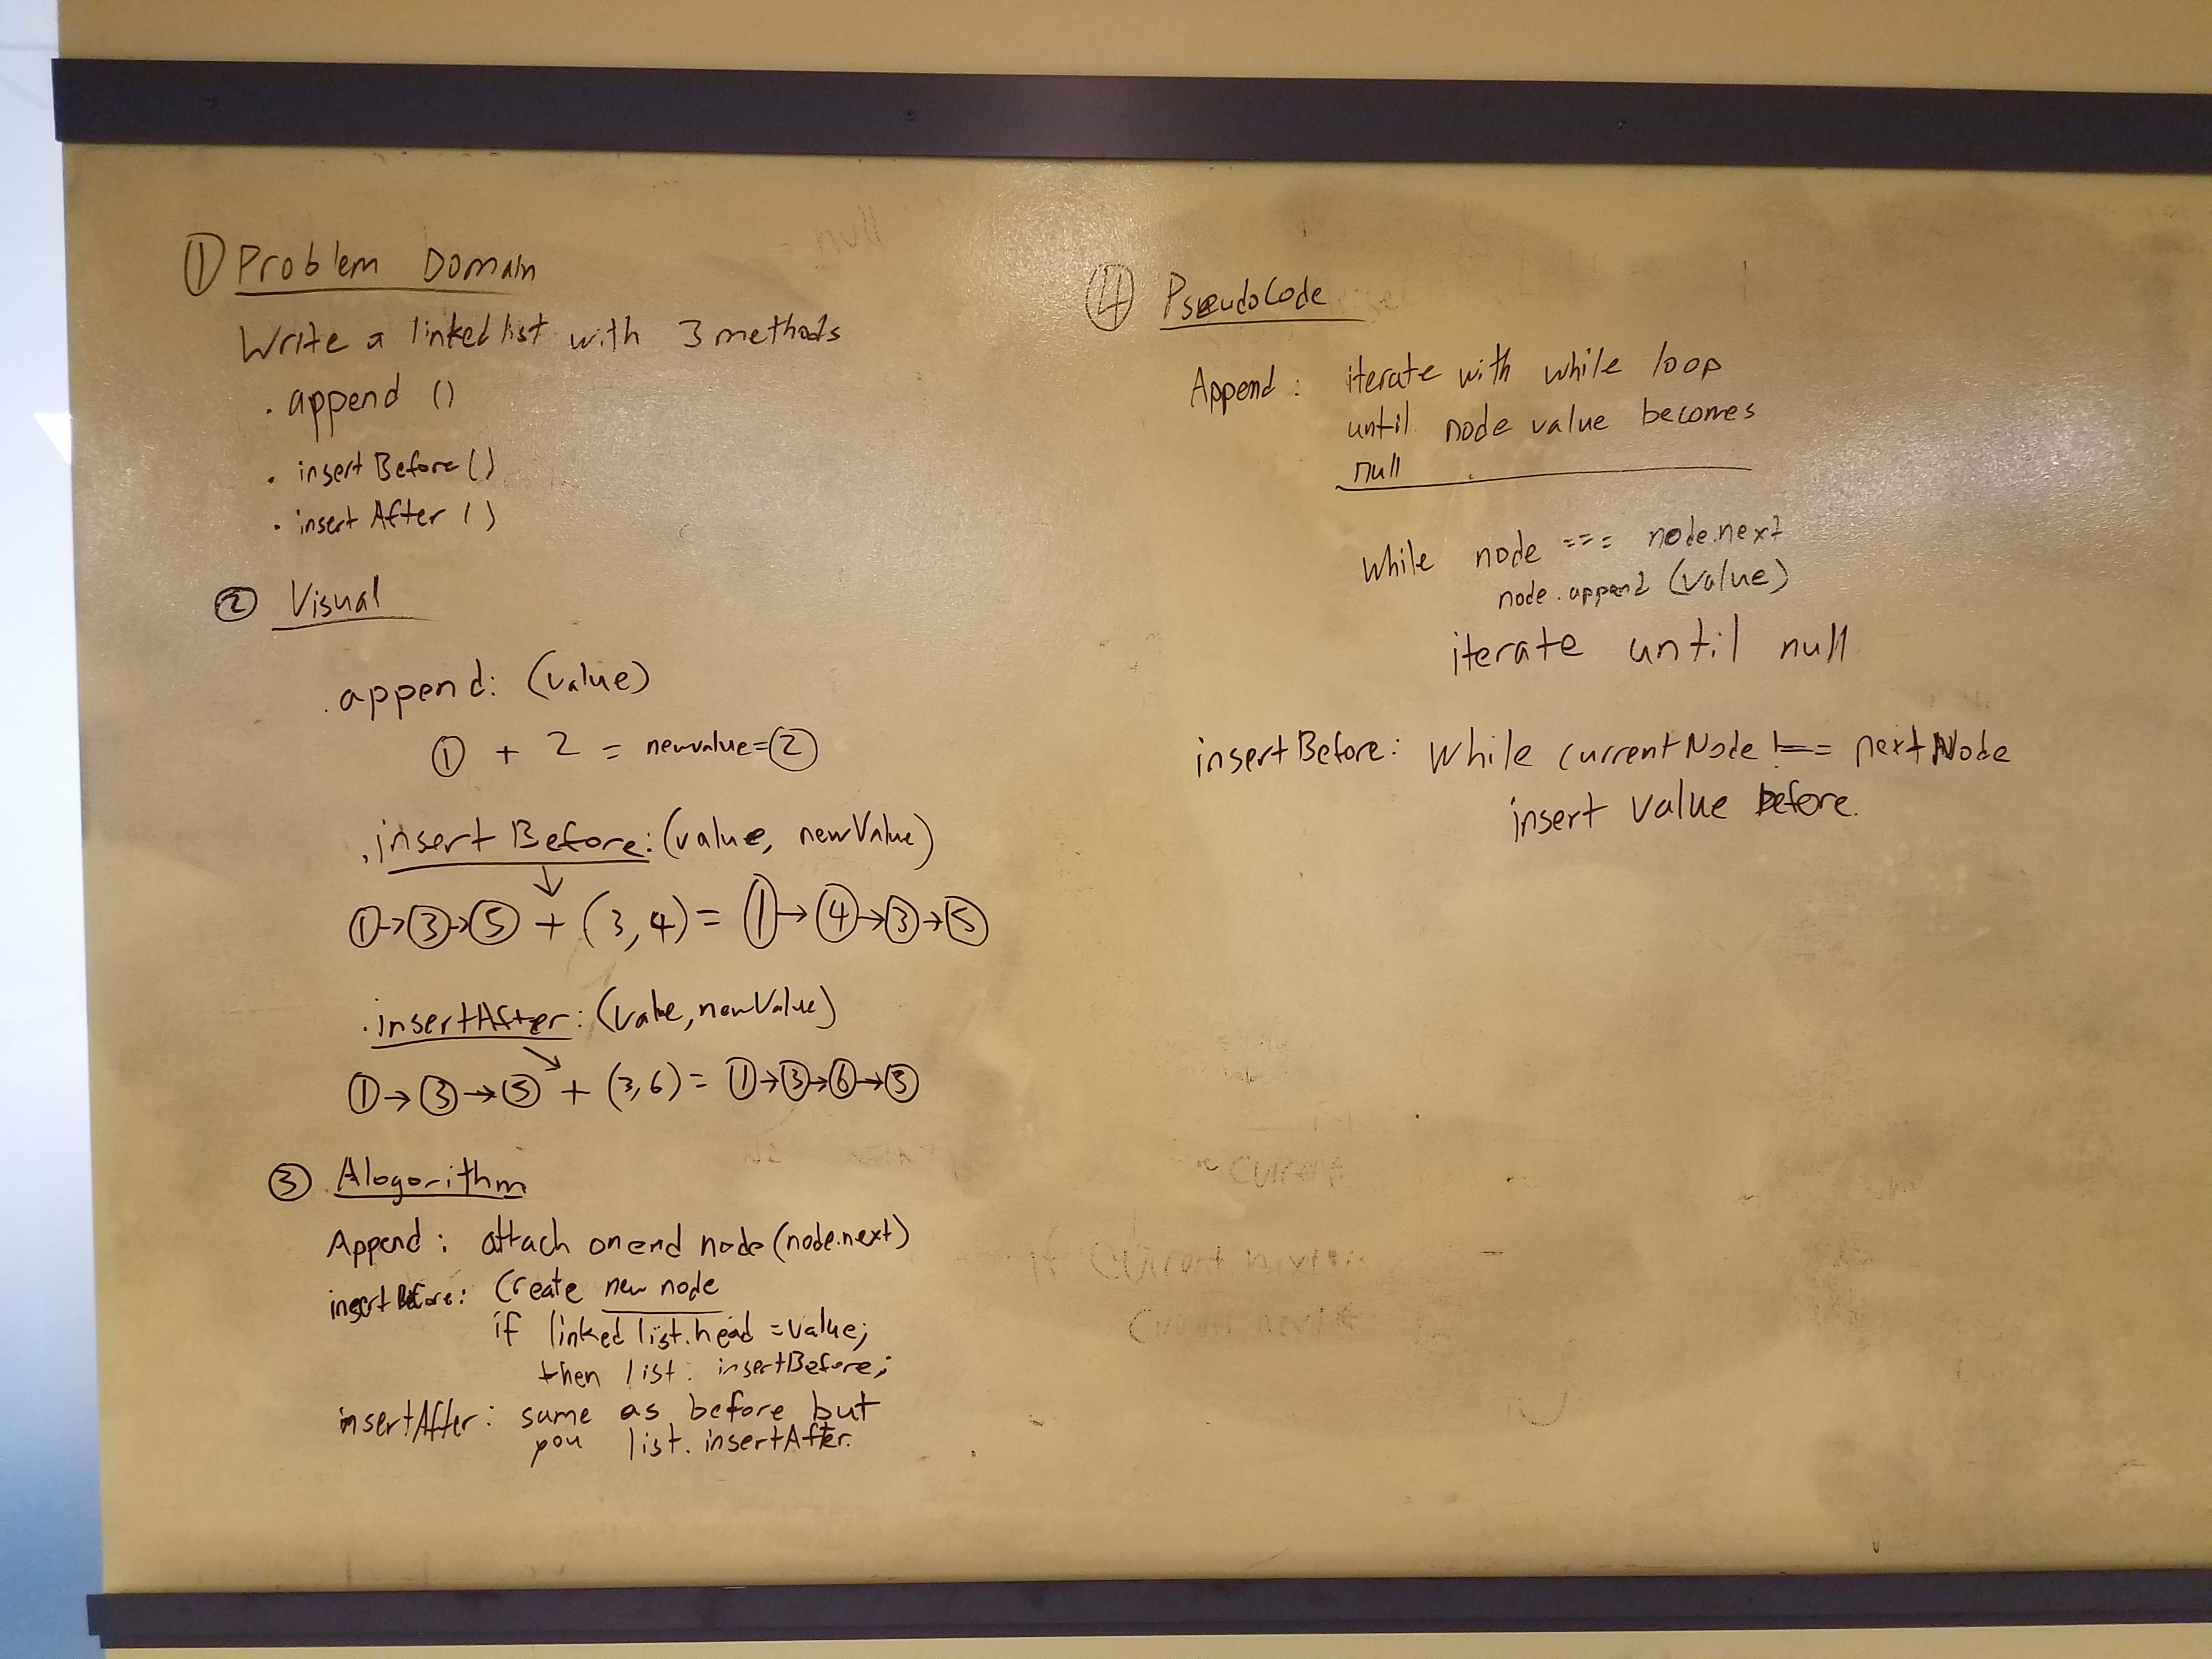 ① Problem Domain
Write a linked list with 3 methods
. append ()
. insertBefore()
. insertAfter()
② Visual
.append: (value)
① + 2 = newvalue=②
.insertBefore:(value, newValue)
↓
①→③→⑤ + (3,4) = ①→④→③→⑤
.insertAfter: (value, newValue)
↘
①→③→⑤ + (3,6) = ①→③→⑥→⑤
③ Alogorithm
Append: attach on end node (node.next)
insertBefore: Create new node
if linked list.head = value;
then list. insertBefore;
insertAfter: same as before but
you list. insertAfter.
④ PseudoCode
Append: iterate with while loop
until node value becomes
null
While node === node.next
node.append (value)
iterate until null
insertBefore: While currentNode !== nextNode
insert value before.
null
Current
if Current next
Current next